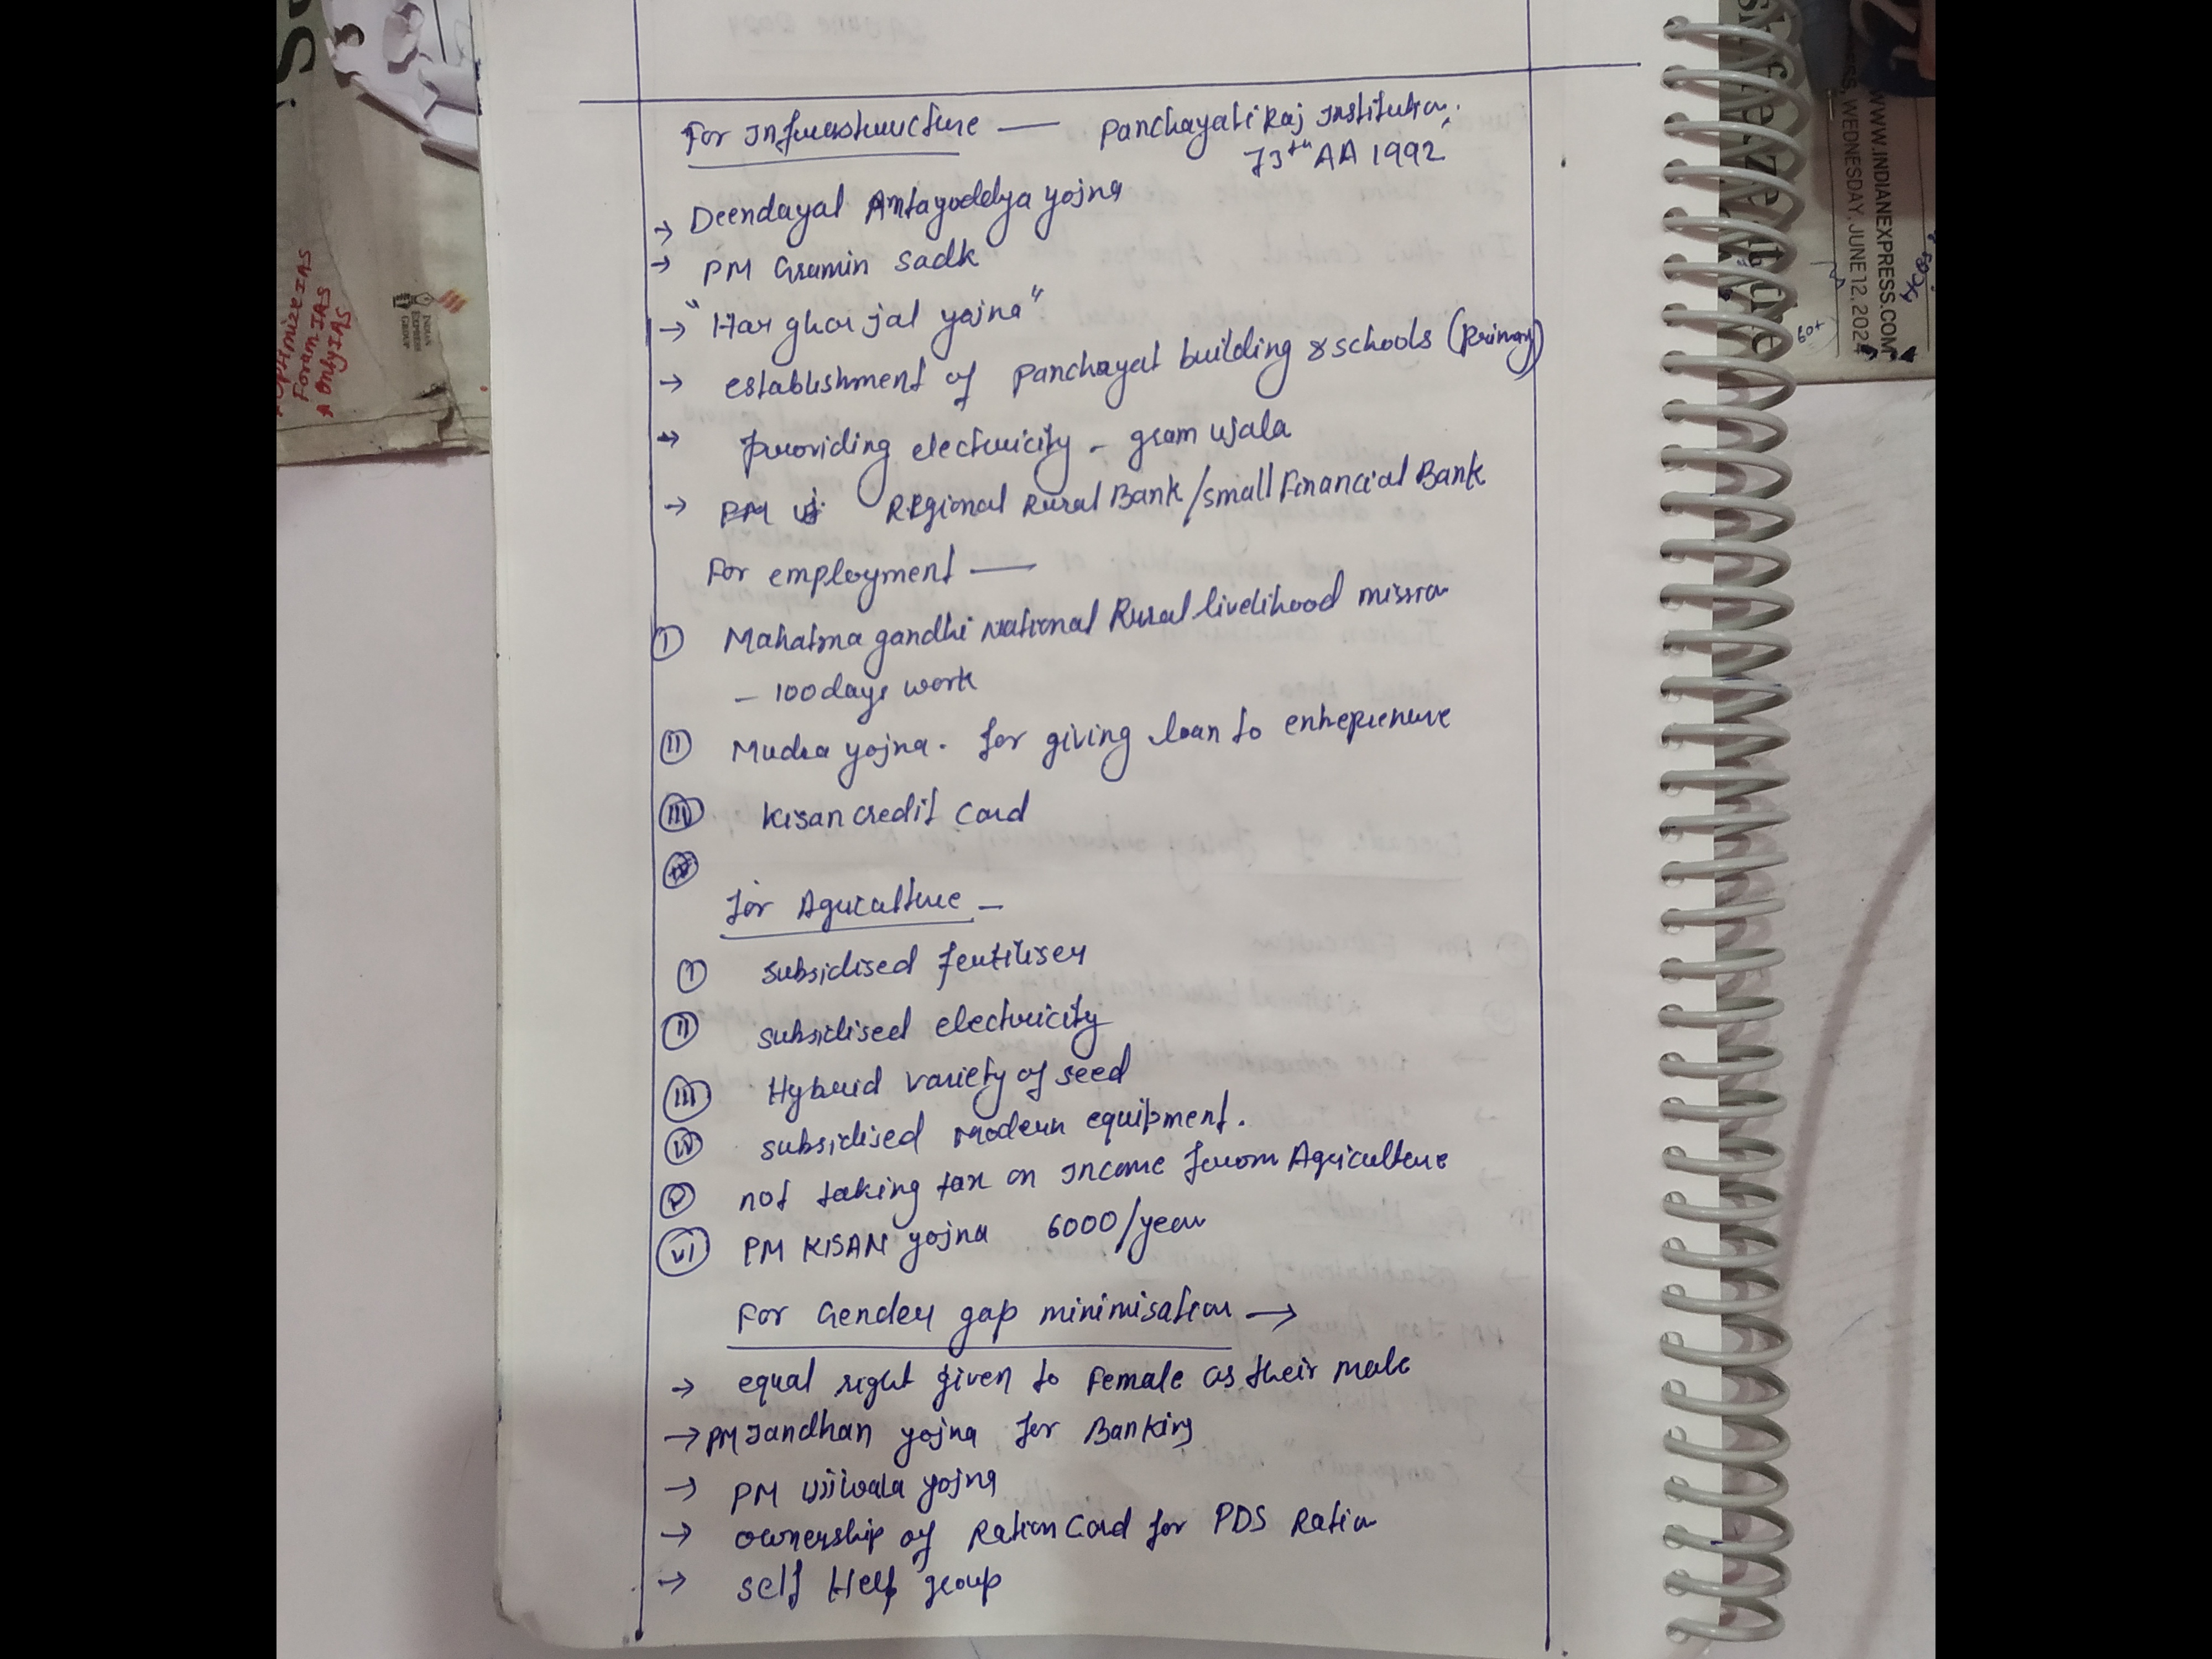 For Infrastructure — Panchayati Raj Institution.
73th AA 1992
→ Deendayal Antayoddya yojna
→ PM Gramin Sadk
→ "Har ghar jal yojna"
→ establishment of Panchayat building & schools (Primary)
→ providing electricity - gram ujala
→ PM uj Regional Rural Bank/small Financial Bank
For employment —
I Mahatma gandhi National Rural livelihood mission
- 100 days work
II Mudra yojna. for giving loan to entreprenure
III Kisan credit Card
IV
for Agriculture -
I subsidised fertiliser
II subsidised electricity
III Hybrid variety of seed
IV subsidised modern equipment.
V not taking tax on Income from Agriculture
VI PM KISAN yojna 6000/year
For Gender gap minimisation →
→ equal right given to Female as their male
→ PM Jandhan yojna for Banking
→ PM ujjwala yojna
→ ownership of Ration Card for PDS Ration
→ self Help group
OptimizeIAS
ForumIAS
OnlyIAS
INDIAN
EXPRESS
GROUP
WWW.INDIANEXPRESS.COM
SS, WEDNESDAY, JUNE 12, 2024